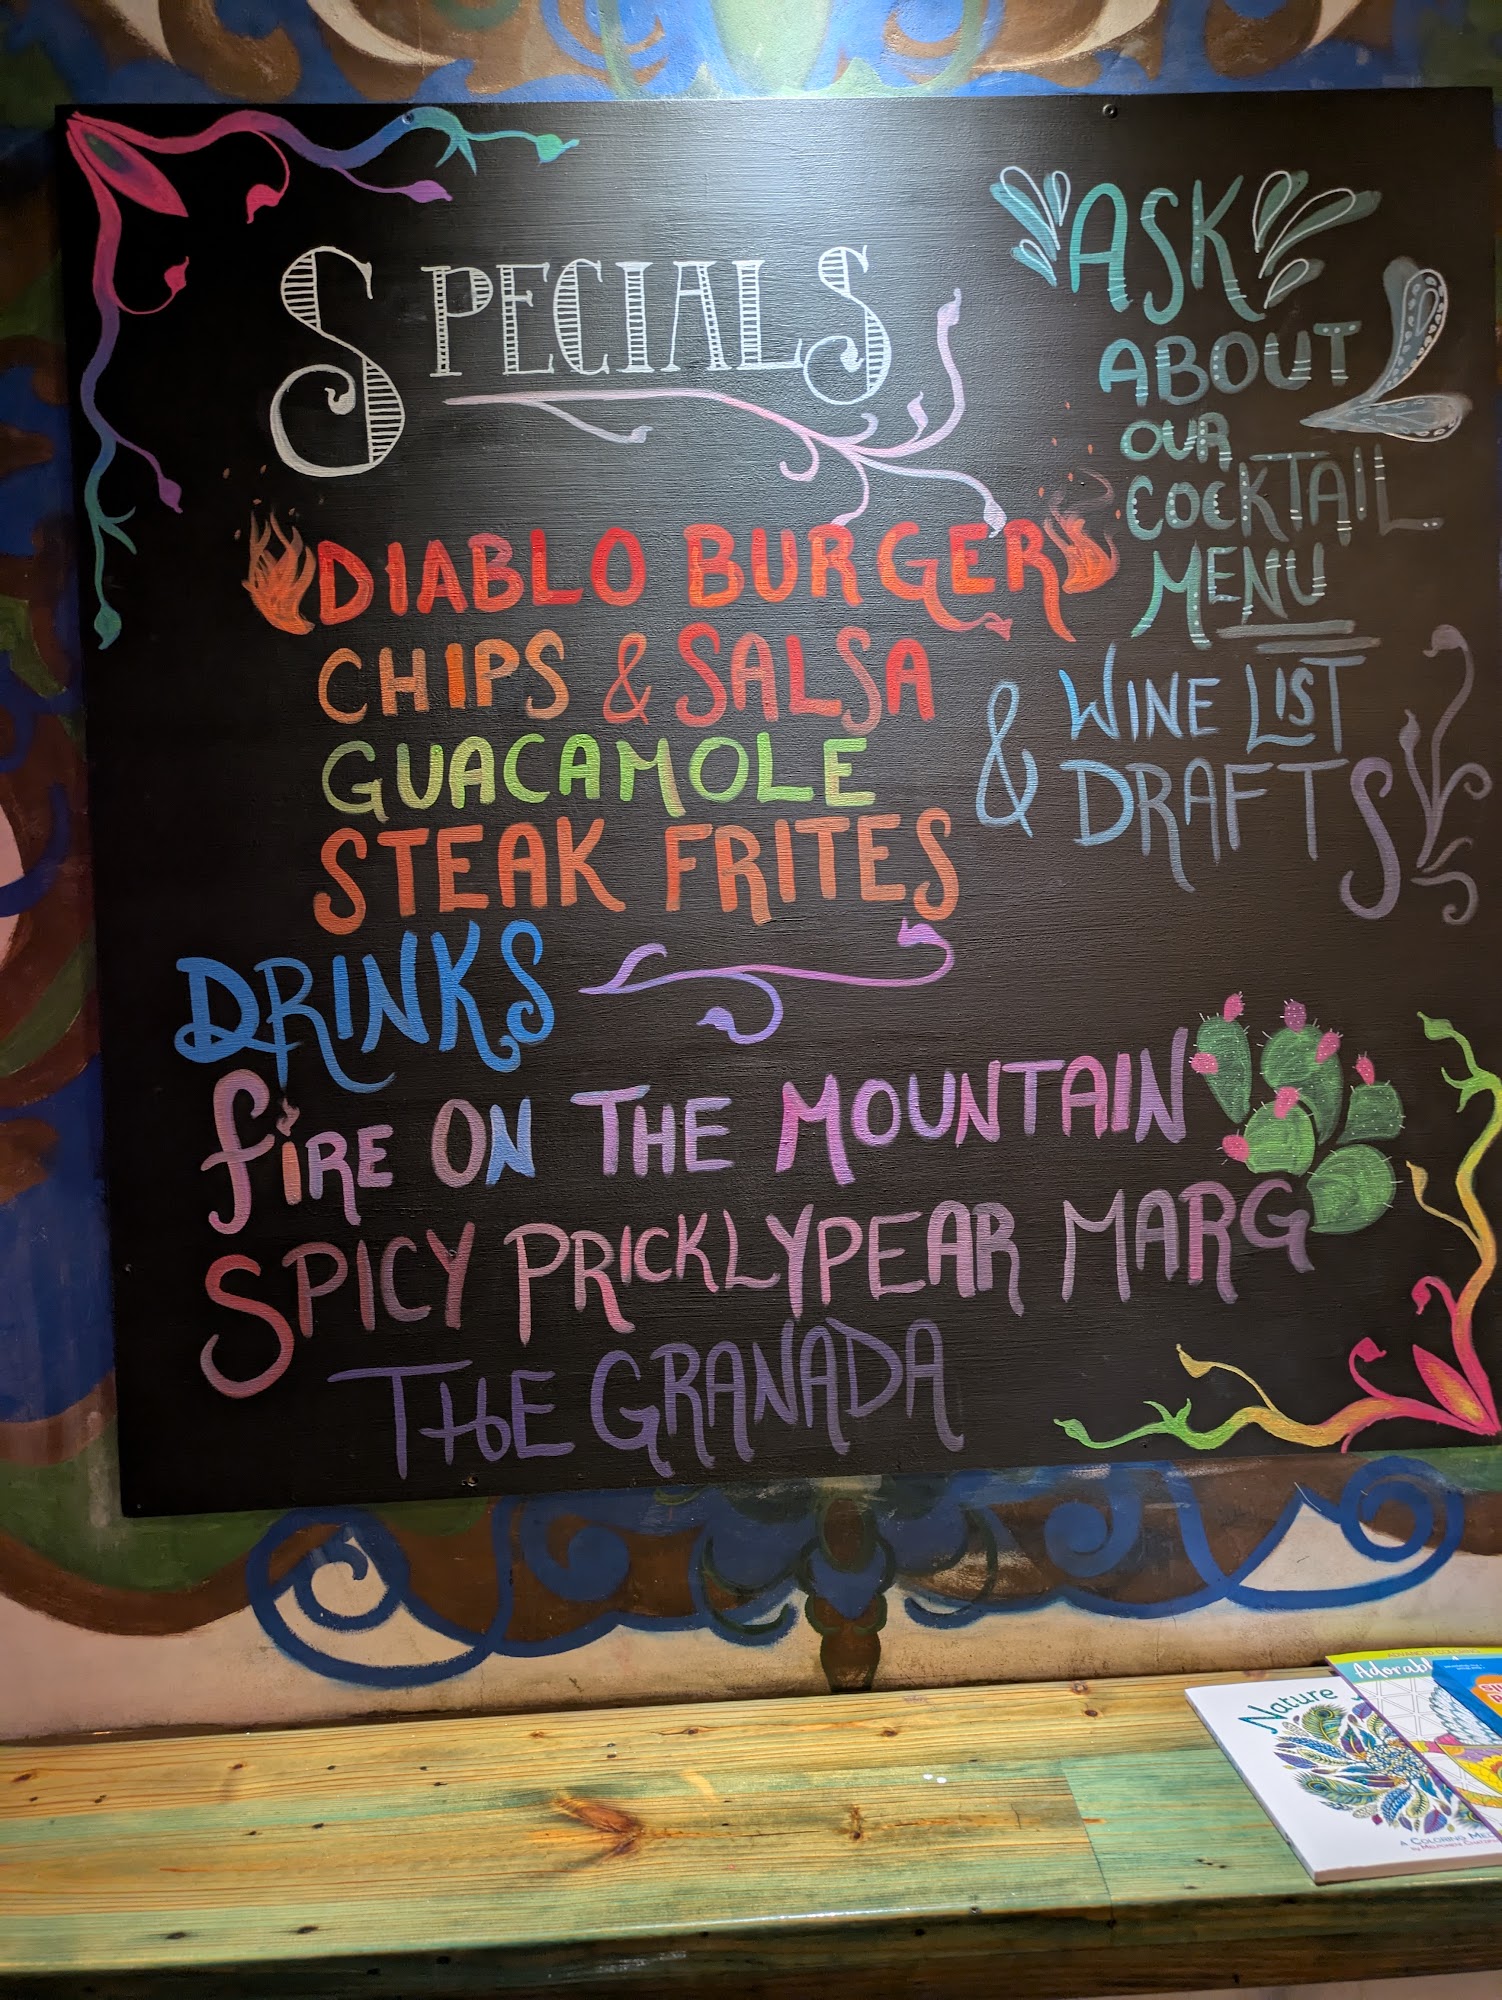 SPECIALS
DIABLO BURGER
CHIPS & SALSA
GUACAMOLE
STEAK FRITES
DRINKS
FIRE ON THE MOUNTAIN
SPICY PRICKLYPEAR MARG
THE GRANADA
ASK
ABOUT
OUR
COCKTAIL
MENU
& WINE LIST
DRAFTS
Nature
A COLORING
Adorabl